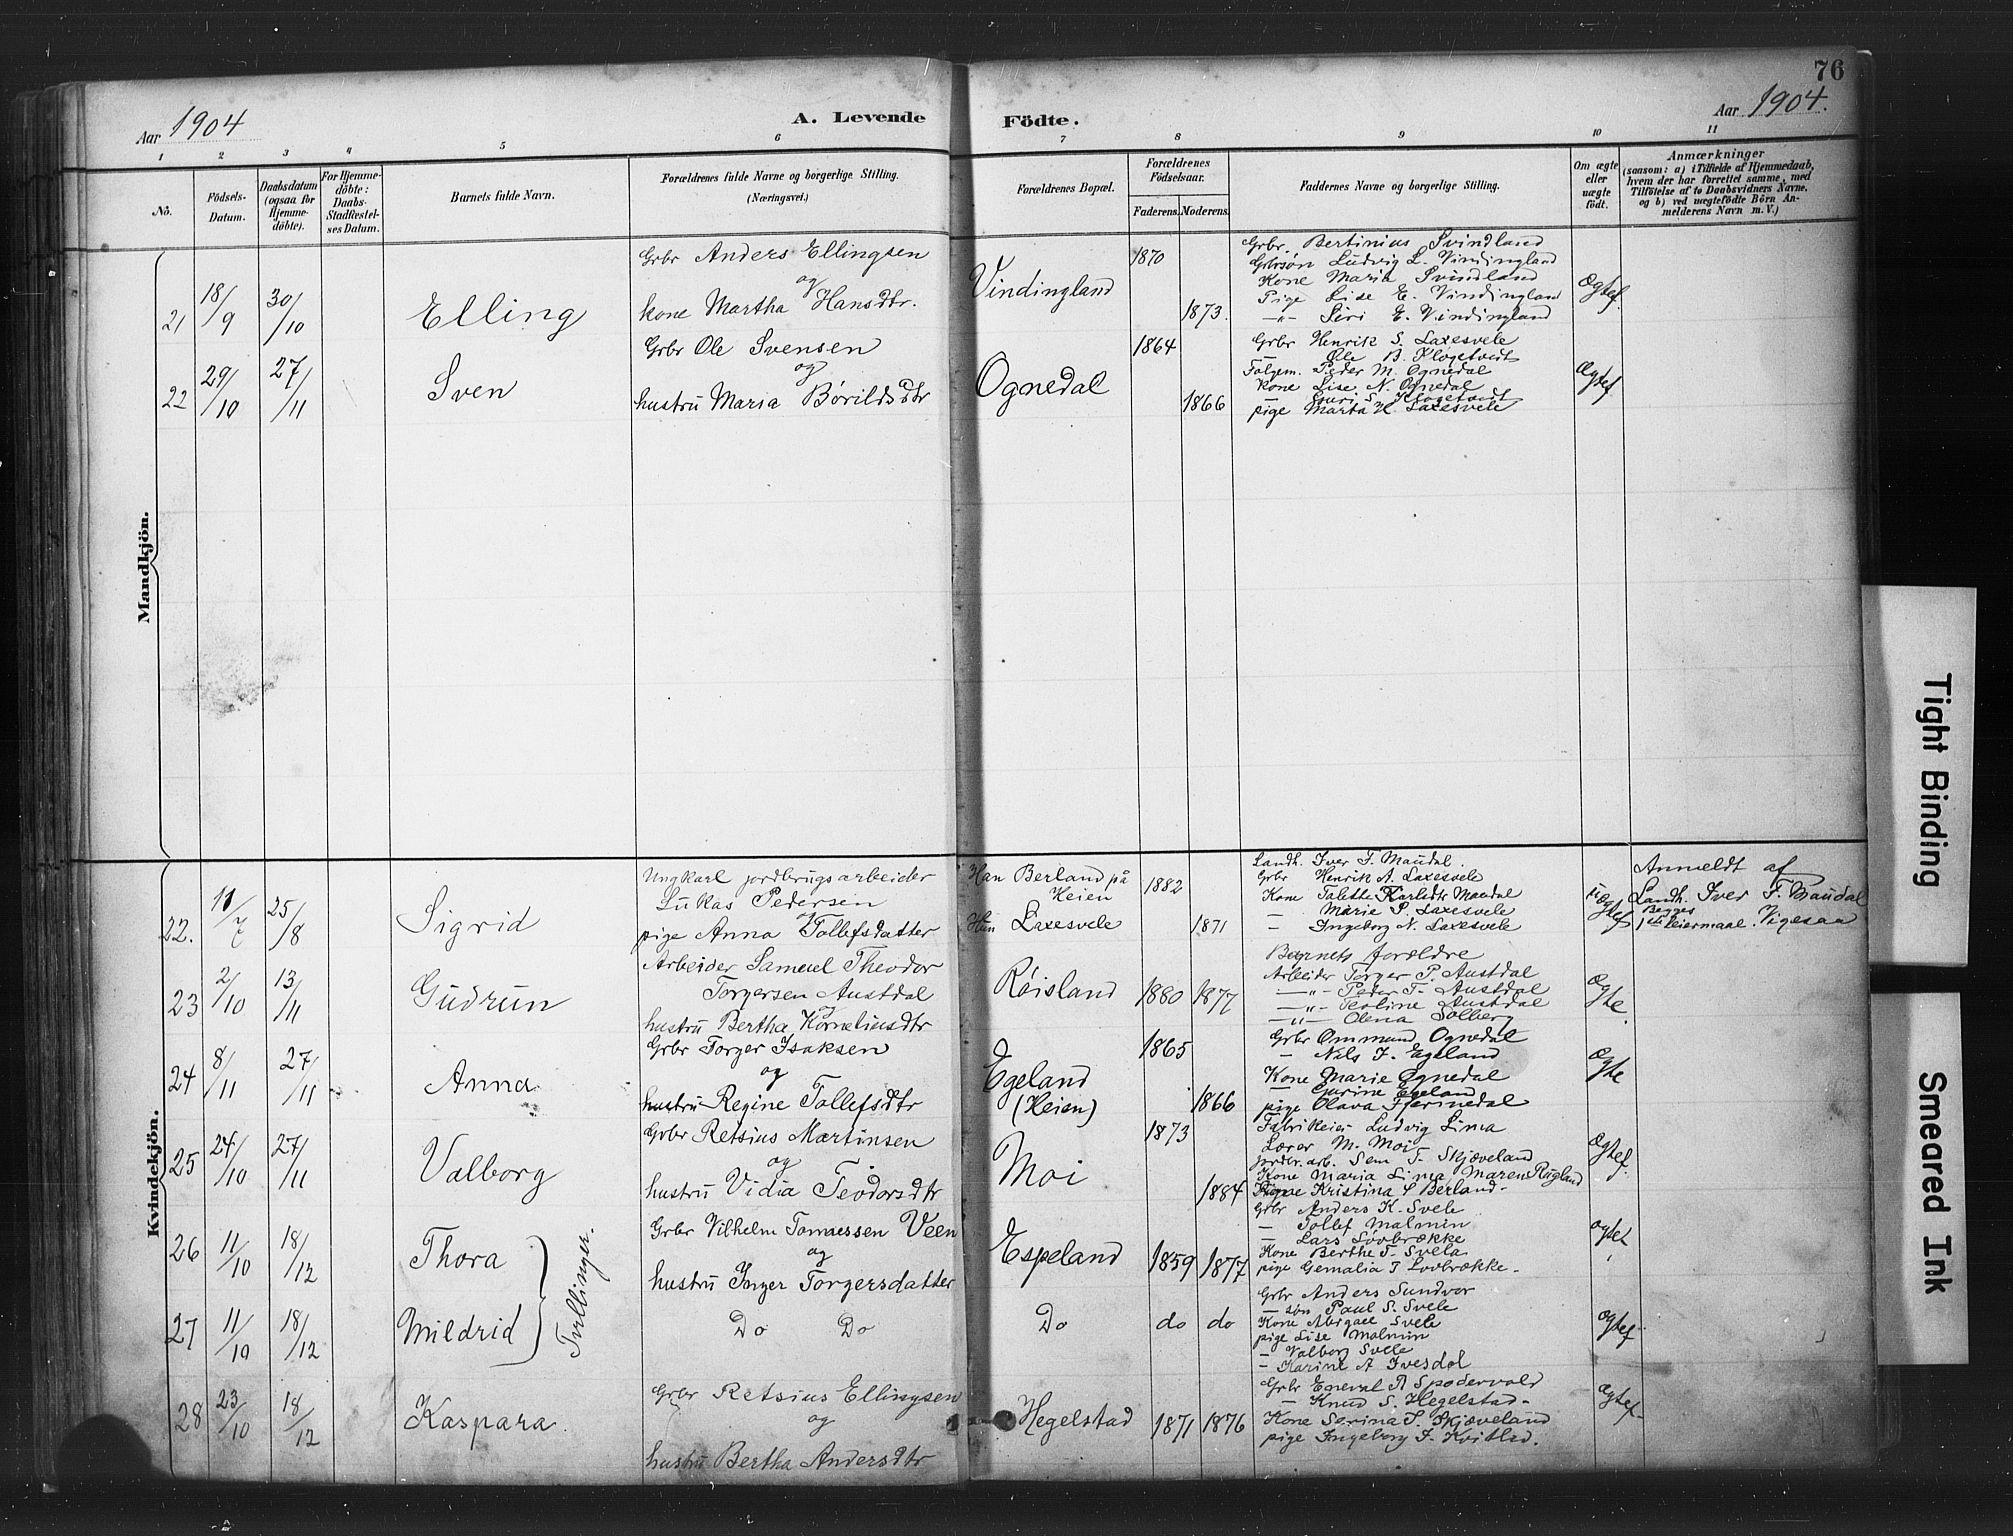 76
Aar 1904
A. Levende
Födte.
Aar 1904.
1 2 3 4 5 6 7 8 9 10 11
No.
Födsels-
Datum.
Daabsdatum
(ogsaa for
Hjemme-
döbte).
For Hjemme-
döbte:
Daabs-
Stadfæstel-
ses Datum.
Barnets fulde Navn.
Forældrenes fulde Navne og borgerlige Stilling.
(Næringsvei.)
Forældrenes Bopæl.
Forældrenes
Födselsaar.
Faderens. Moderens.
Faddernes Navne og borgerlige Stilling.
Om ægte
eller
uægte
født.
Anmærkninger
(saasom: a) i Tilfælde af Hjemmedaab,
hvem der har forrettet samme, med
Tilföielse af to Daabsvidners Navne,
og b) ved uægtefödte Börn An-
melderens Navn m. V.)
Mandkjön.
21 18/9 30/10 Elling
Grbr Anders Ellingsen
og
kone Martha Hansdtr.
Vindingland 1870 1873.
Grbr. Bertinius Svindland
Grbrsøn Ludvig L. Vindingland
Kone Maria Svindland
Pige Lise E. Vindingland
—"— Siri E. Vindingland
Ægtef.
22 29/10 27/11 Sven
Grbr Ole Svensen
og
hustru Maria Børildsdtr
Ognedal 1864 1866
Grbr Henrik S. Laxesvele
— Ole B. Klogetvedt
Følgem. Peder M. Ognedal
Kone Lise N. Ognedal
— Guri S. Klogetvedt
pige Marta H. Laxesvele
Ægtef
Kvindekjön.
22. 11/7 25/8 Sigrid
Ungkarl jordbrugsarbeider
Lukas Pedersen
og
pige Anna Tollefsdatter
Han Berland på
Heien
Hun Laxesvele
1882 1871
Landh. Iver F. Maudal.
Grbr Henrik A. Laxesvele
Kone Talette Karlsdtr Maudal
— Marie P. Laxesvele
— Ingeborg N. Laxesvele
uæg
gtef
Anmeldt af
Landh. Iver F. Maudal
Begges
1ste Leiermaal. Vigesaa
23 2/10 13/11 Gudrun
Arbeider Samuel Theodor
Torgersen Austdal
og
hustru Bertha Korneliusdtr
Røisland 1880 1877
Barnets forældre
Arbeider Torger P. Austdal
—"— Peder T. Austdal
—"— Teoline Austdal
—"— Olena Solberg
Ægte.
24 8/11 27/11 Anna
Grbr Torger Isaksen
og
hustru Regine Tollefsdtr
Egeland
(Heien)
1865 1866
Grbr Ommund Ognedal
— Nils J. Egeland
Kone Marie Ognedal
— Gurine Egeland
pige Olava Fjermedal
Ægte
25 24/10 27/11 Valborg
Grbr Retsius Martinsen
og
hustru Vidia Teodorsdtr
Moi 1873 1884
Fabrikeier Ludvig Lima
Lærer M. Moi
jordbr.arb. Sem T. Skjæveland
Kone Maria Lima, Maren Rugland
Pige Kristina S Berland.
Ægtef.
26 11/10 18/12 Thora
Tvillinger.
Grbr Vilhelm Tomassen Veen
og
hustru Inger Torgersdatter
Espeland 1859 1877
Grbr Anders K. Svele
— Tollef Malmin
— Lars Lovbrække
Kone Berthe T. Svela
pige Gemalia T Lovbrække.
ægtef
27 11/10 18/12 Mildrid
Do Do
Do do do
Grbr Anders Sundvor
— søn Paul S. Svele
Kone Abigael Svele
pige Lise Malmin
— Valborg Svele
— Karine A Ivesdal
ægtef.
28 23/10 18/12 Kaspara
Grbr Retsius Ellingsen
og
hustru Bertha Andersdtr
Hegelstad 1871 1876
Grbr Eneval A Spødervold
— Knud S. Hegelstad.
Kone Serina T. Skjæveland
pige Ingeborg J. Kvitlad.
Ægtef.
Tight Binding
Smeared Ink